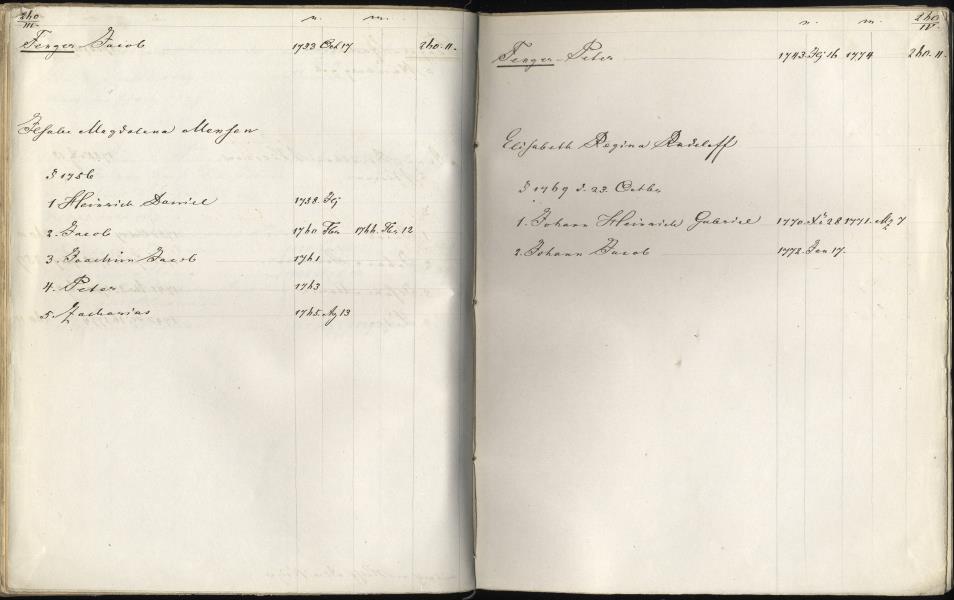 260
III.
n. m.
Fenger Jacob 1733 Oct 17 260. II.
Ilsabe Magdalena Mensen
§ 1756
1 Heinrich Daniel 1758
2. Jacob 1760 1766. 12
3. Joachim Jacob 1761
4. Peter 1763
5. Zacharias 1765. Ag 13
n. m. 260
IV.
Fenger Peter 1743. 16 1774 260. II.
Elisabeth Regina Radeloff
§ 1769 d. 23. Octbr
1. Johann Heinrich Gabriel 1770. Nr 28 1771. Mz 7
2. Johann Jacob 1772. Jan 17.